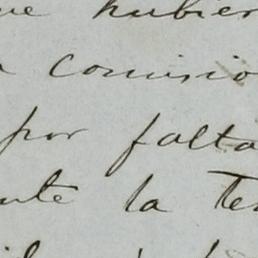 ue hubier
a comisio
por falta
nte la Te